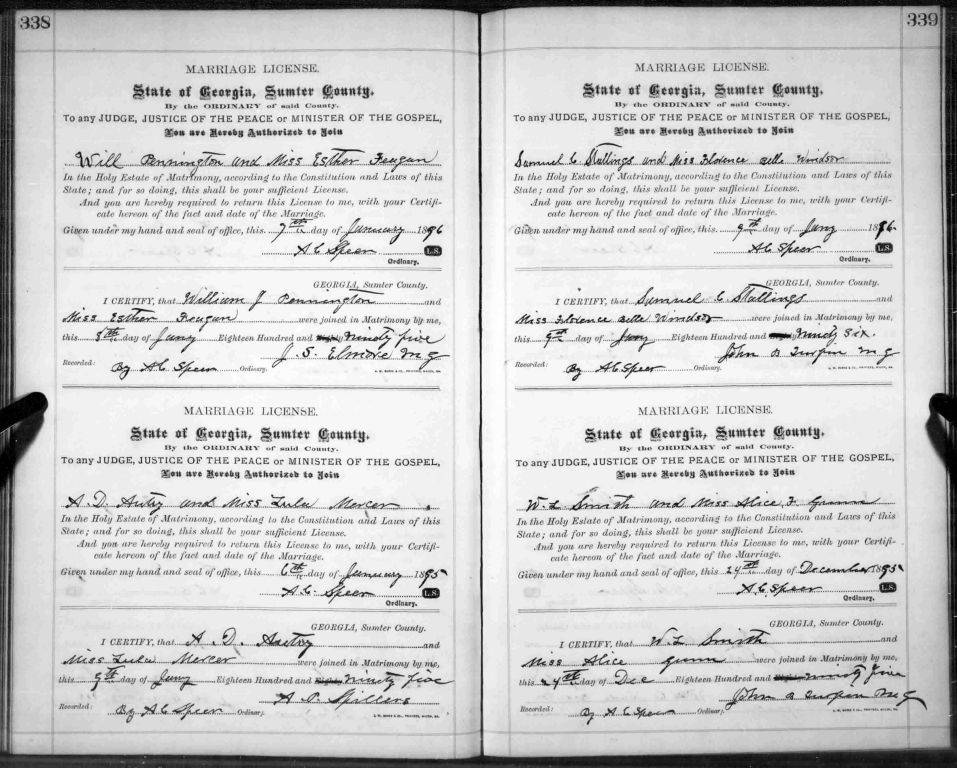 338
MARRIAGE LICENSE.
State of Georgia, Sumter County.
By the ORDINARY of said County.
To any JUDGE, JUSTICE OF THE PEACE or MINISTER OF THE GOSPEL,
You are Hereby Authorized to Join
Will Pennington and Miss Esther Feugan
In the Holy Estate of Matrimony, according to the Constitution and Laws of this
State; and for so doing, this shall be your sufficient License.
And you are hereby required to return this License to me, with your Certifi-
cate hereon of the fact and date of the Marriage.
Given under my hand and seal of office, this 7th day of January 1896
A C Speer L.S.
Ordinary.
GEORGIA, Sumter County.
I CERTIFY, that William J Pennington and
Miss Esther Feugan were joined in Matrimony by me,
this 8th day of Jany Eighteen Hundred and Ninety five
J. S. Elmore M G
Recorded: By A C Speer Ordinary.
MARRIAGE LICENSE.
State of Georgia, Sumter County.
By the ORDINARY of said County.
To any JUDGE, JUSTICE OF THE PEACE or MINISTER OF THE GOSPEL,
You are Hereby Authorized to Join
A. D. Autry and Miss Lula Mercer
In the Holy Estate of Matrimony, according to the Constitution and Laws of this
State; and for so doing, this shall be your sufficient License.
And you are hereby required to return this License to me, with your Certifi-
cate hereon of the fact and date of the Marriage.
Given under my hand and seal of office, this 6th day of January 1895
A. C. Speer L.S.
Ordinary.
GEORGIA, Sumter County.
I CERTIFY, that A. D. Autry and
Miss Lula Mercer were joined in Matrimony by me,
this 9th day of Jany Eighteen Hundred and Ninety five
A. P. Spillers
Recorded: By A C Speer Ordinary.
339
MARRIAGE LICENSE.
State of Georgia, Sumter County.
By the ORDINARY of said County.
To any JUDGE, JUSTICE OF THE PEACE or MINISTER OF THE GOSPEL,
You are Hereby Authorized to Join
Samuel C Stallings and Miss Florence Belle Windsor
In the Holy Estate of Matrimony, according to the Constitution and Laws of this
State; and for so doing, this shall be your sufficient License.
And you are hereby required to return this License to me, with your Certifi-
cate hereon of the fact and date of the Marriage.
Given under my hand and seal of office, this 9th day of Jany 1896
A C Speer L.S.
Ordinary.
GEORGIA, Sumter County.
I CERTIFY, that Samuel C Stallings and
Miss Florence Belle Windsor were joined in Matrimony by me,
this 9th day of Jany Eighteen Hundred and Ninety six.
John B Turpin M G
Recorded: By A C Speer Ordinary.
MARRIAGE LICENSE.
State of Georgia, Sumter County.
By the ORDINARY of said County.
To any JUDGE, JUSTICE OF THE PEACE or MINISTER OF THE GOSPEL,
You are Hereby Authorized to Join
W. L Smith and Miss Alice F. Gunn
In the Holy Estate of Matrimony, according to the Constitution and Laws of this
State; and for so doing, this shall be your sufficient License.
And you are hereby required to return this License to me, with your Certifi-
cate hereon of the fact and date of the Marriage.
Given under my hand and seal of office, this 24th day of December 1895
A C Speer L.S.
Ordinary.
GEORGIA, Sumter County.
I CERTIFY, that W. L Smith and
Miss Alice Gunn were joined in Matrimony by me,
this 24th day of Dec Eighteen Hundred and ninety five
John B Turpin M G
Recorded: By A C Speer Ordinary.